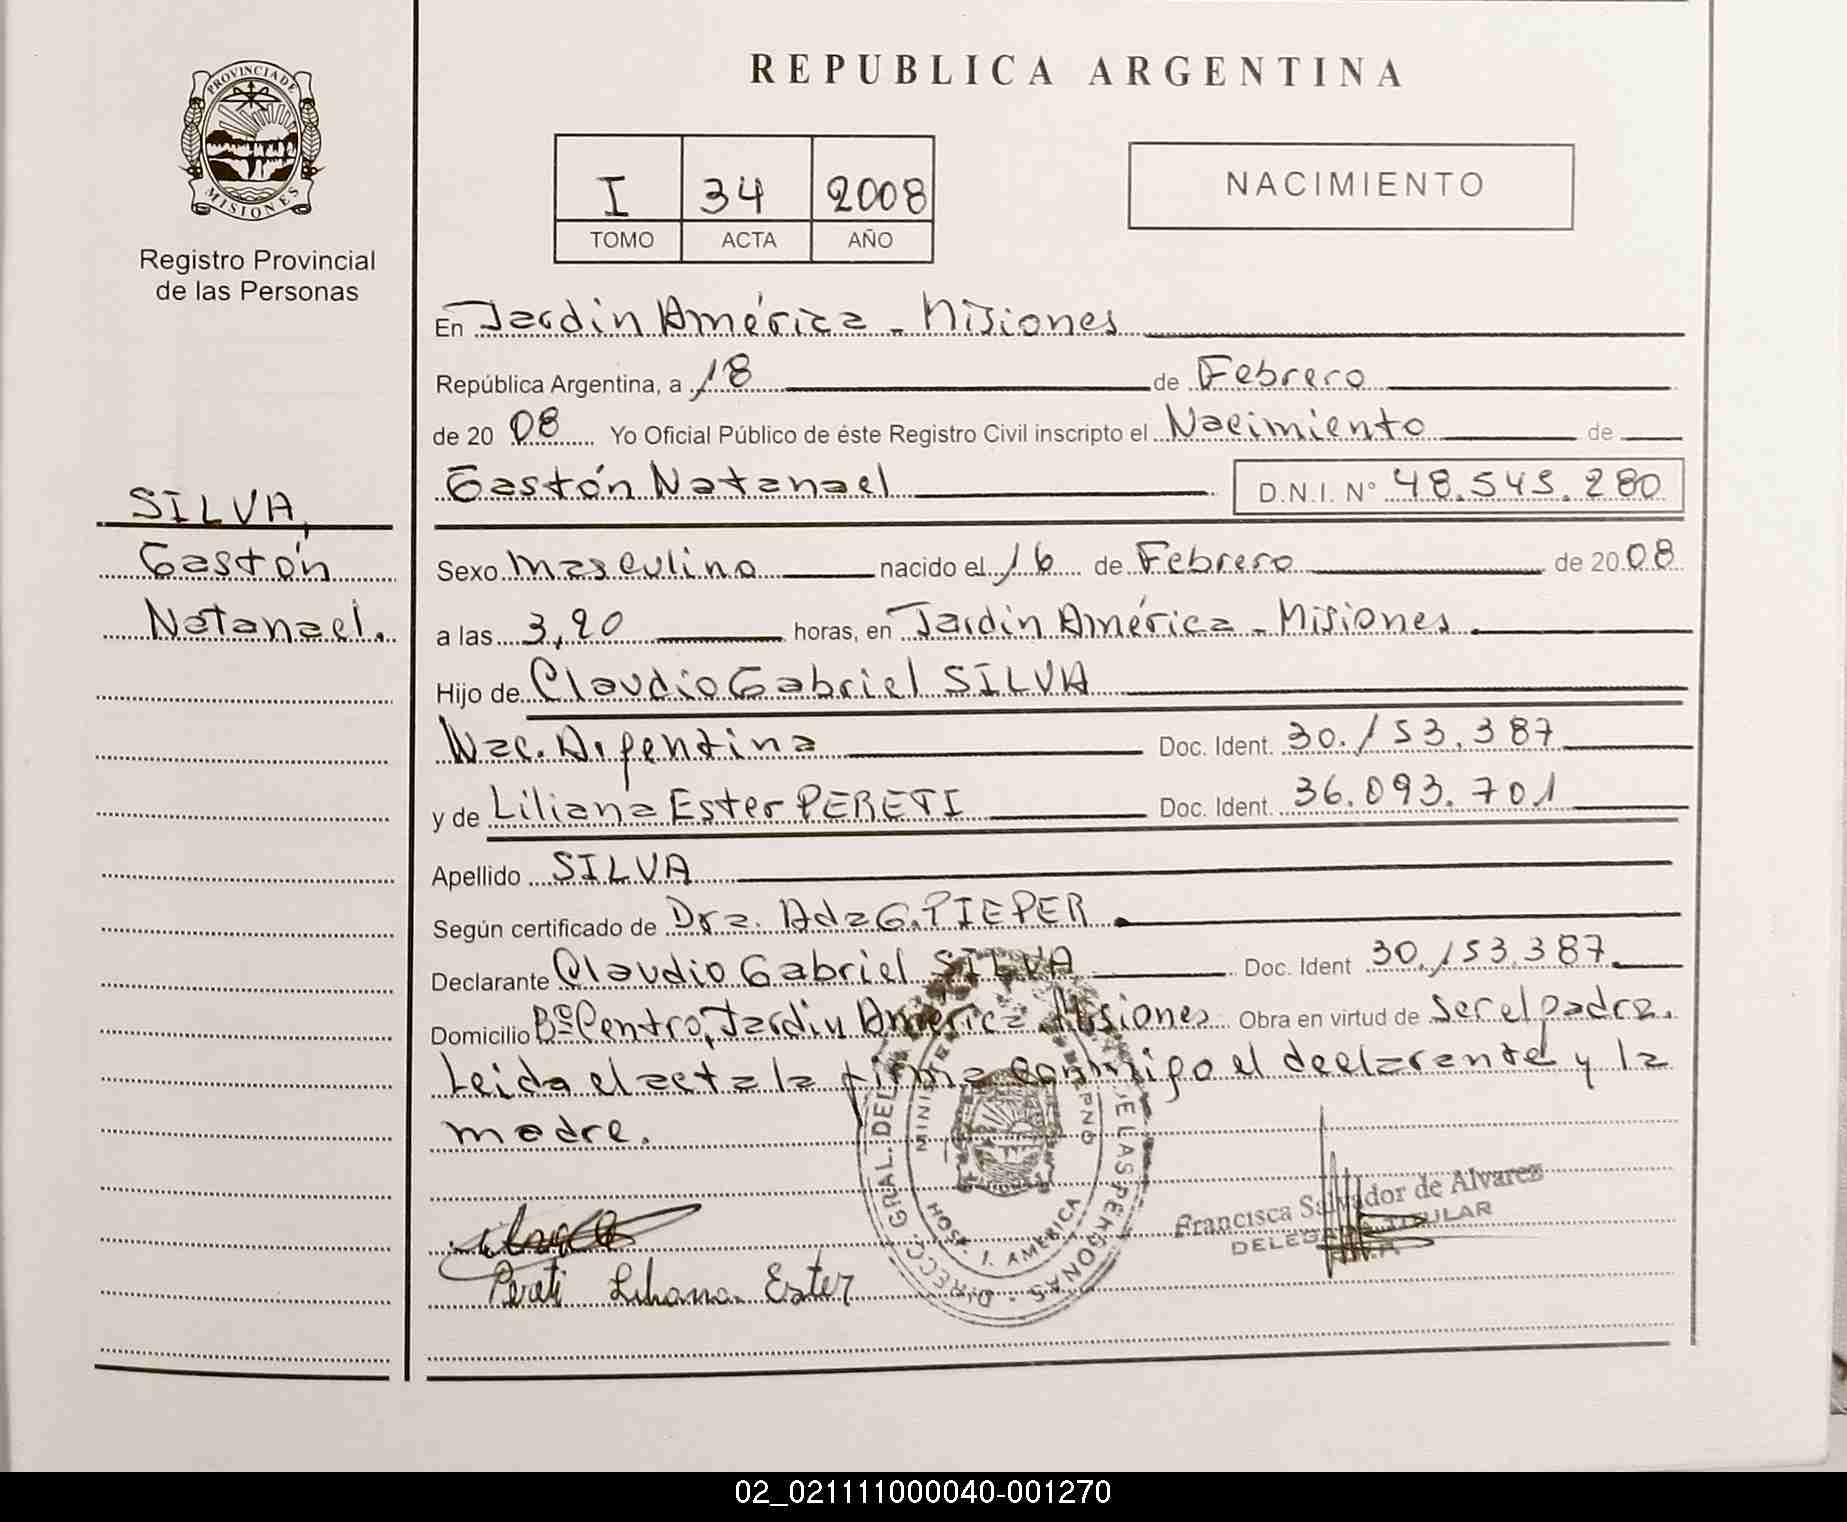 REPUBLICA ARGENTINA
PROVINCIA DE
MISIONES
Registro Provincial
de las Personas
I 34 2008
TOMO ACTA AÑO
NACIMIENTO
En Jardin América - Misiones
República Argentina, a 18 de Febrero
de 20 08 Yo Oficial Público de éste Registro Civil inscripto el Nacimiento de
Gastón Natanael D.N.I. N° 48.545.280
SILVA,
Gastón
Natanael.
Sexo Masculino nacido el 16 de Febrero de 20 08
a las 3,20 horas, en Jardin América - Misiones
Hijo de Claudio Gabriel SILVA
Nac. Argentina Doc. Ident. 30.153.387
y de Liliana Ester PERETI Doc. Ident. 36.093.701
Apellido SILVA
Según certificado de Dra. Ada G. PIEPER
Declarante Claudio Gabriel SILVA Doc. Ident 30.153.387
Domicilio Bº Centro, Jardin América Misiones Obra en virtud de ser el padre.
Leida el acta la firma conmigo el declarante y la
madre.
DIRECC. GRAL. DEL DE LAS PERSONAS
HOSP. J. AMERICA
Francisca Salvador de Alvarez
DELEGADA TITULAR
Pereti Liliana Ester
02_021111000040-001270